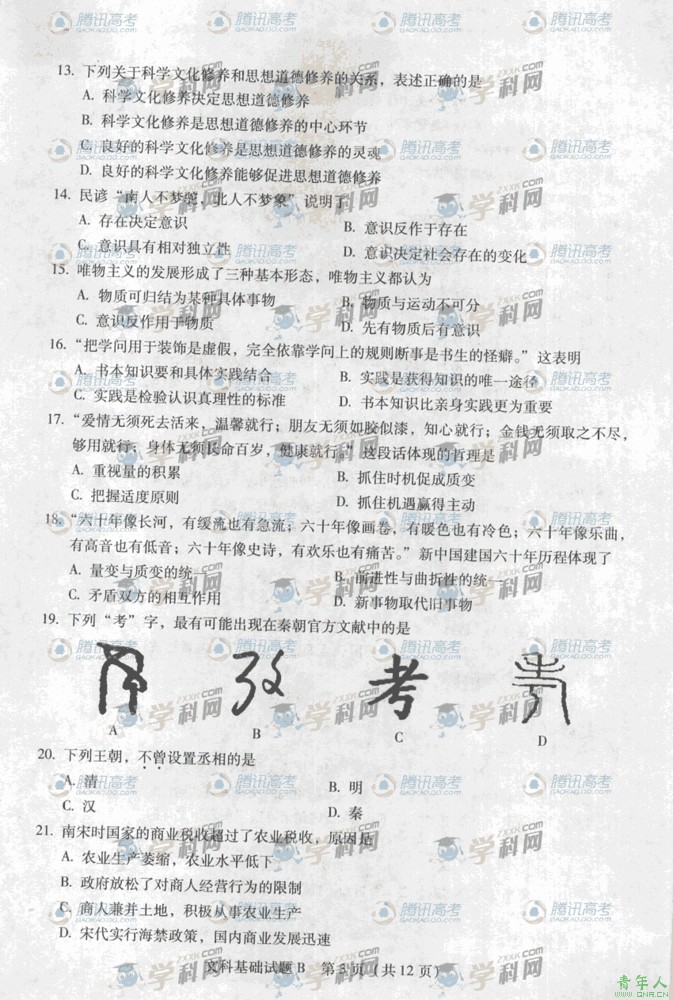 13. 下列关于科学文化修养和思想道德修养的关系，表述正确的是
A. 科学文化修养决定思想道德修养
B. 科学文化修养是思想道德修养的中心环节
C. 良好的科学文化修养是思想道德修养的灵魂
D. 良好的科学文化修养能够促进思想道德修养
14. 民谚“南人不梦驼，北人不梦象”说明了
A. 存在决定意识 B. 意识反作于存在
C. 意识具有相对独立性 D. 意识决定社会存在的变化
15. 唯物主义的发展形成了三种基本形态，唯物主义都认为
A. 物质可归结为某种具体事物 B. 物质与运动不可分
C. 意识反作用于物质 D. 先有物质后有意识
16. “把学问用于装饰是虚假，完全依靠学问上的规则断事是书生的怪癖。”这表明
A. 书本知识要和具体实践结合 B. 实践是获得知识的唯一途径
C. 实践是检验认识真理性的标准 D. 书本知识比亲身实践更为重要
17. “爱情无须死去活来，温馨就行；朋友无须如胶似漆，知心就行；金钱无须取之不尽，
够用就行；身体无须长命百岁，健康就行。”这段话体现的哲理是
A. 重视量的积累 B. 抓住时机促成质变
C. 把握适度原则 D. 抓住机遇赢得主动
18. “六十年像长河，有缓流也有急流；六十年像画卷，有暖色也有冷色；六十年像乐曲，
有高音也有低音；六十年像史诗，有欢乐也有痛苦。”新中国建国六十年历程体现了
A. 量变与质变的统一 B. 前进性与曲折性的统一
C. 矛盾双方的相互作用 D. 新事物取代旧事物
19. 下列“考”字，最有可能出现在秦朝官方文献中的是
考
A B C D
20. 下列王朝，不曾设置丞相的是
A. 清 B. 明
C. 汉 D. 秦
21. 南宋时国家的商业税收超过了农业税收，原因是
A. 农业生产萎缩，农业水平低下
B. 政府放松了对商人经营行为的限制
C. 商人兼并土地，积极从事农业生产
D. 宋代实行海禁政策，国内商业发展迅速
文科基础试题 B 第 3 页（共 12 页）
腾讯高考
GAOKAO.QQ.COM
学科网
ZXXK.COM
青年人
WWW.QNR.CN